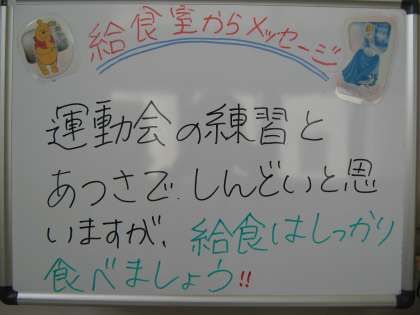 給食室からメッセージ
運動会の練習と
あつさで、しんどいと思
いますが、給食はしっかり
食べましょう!!